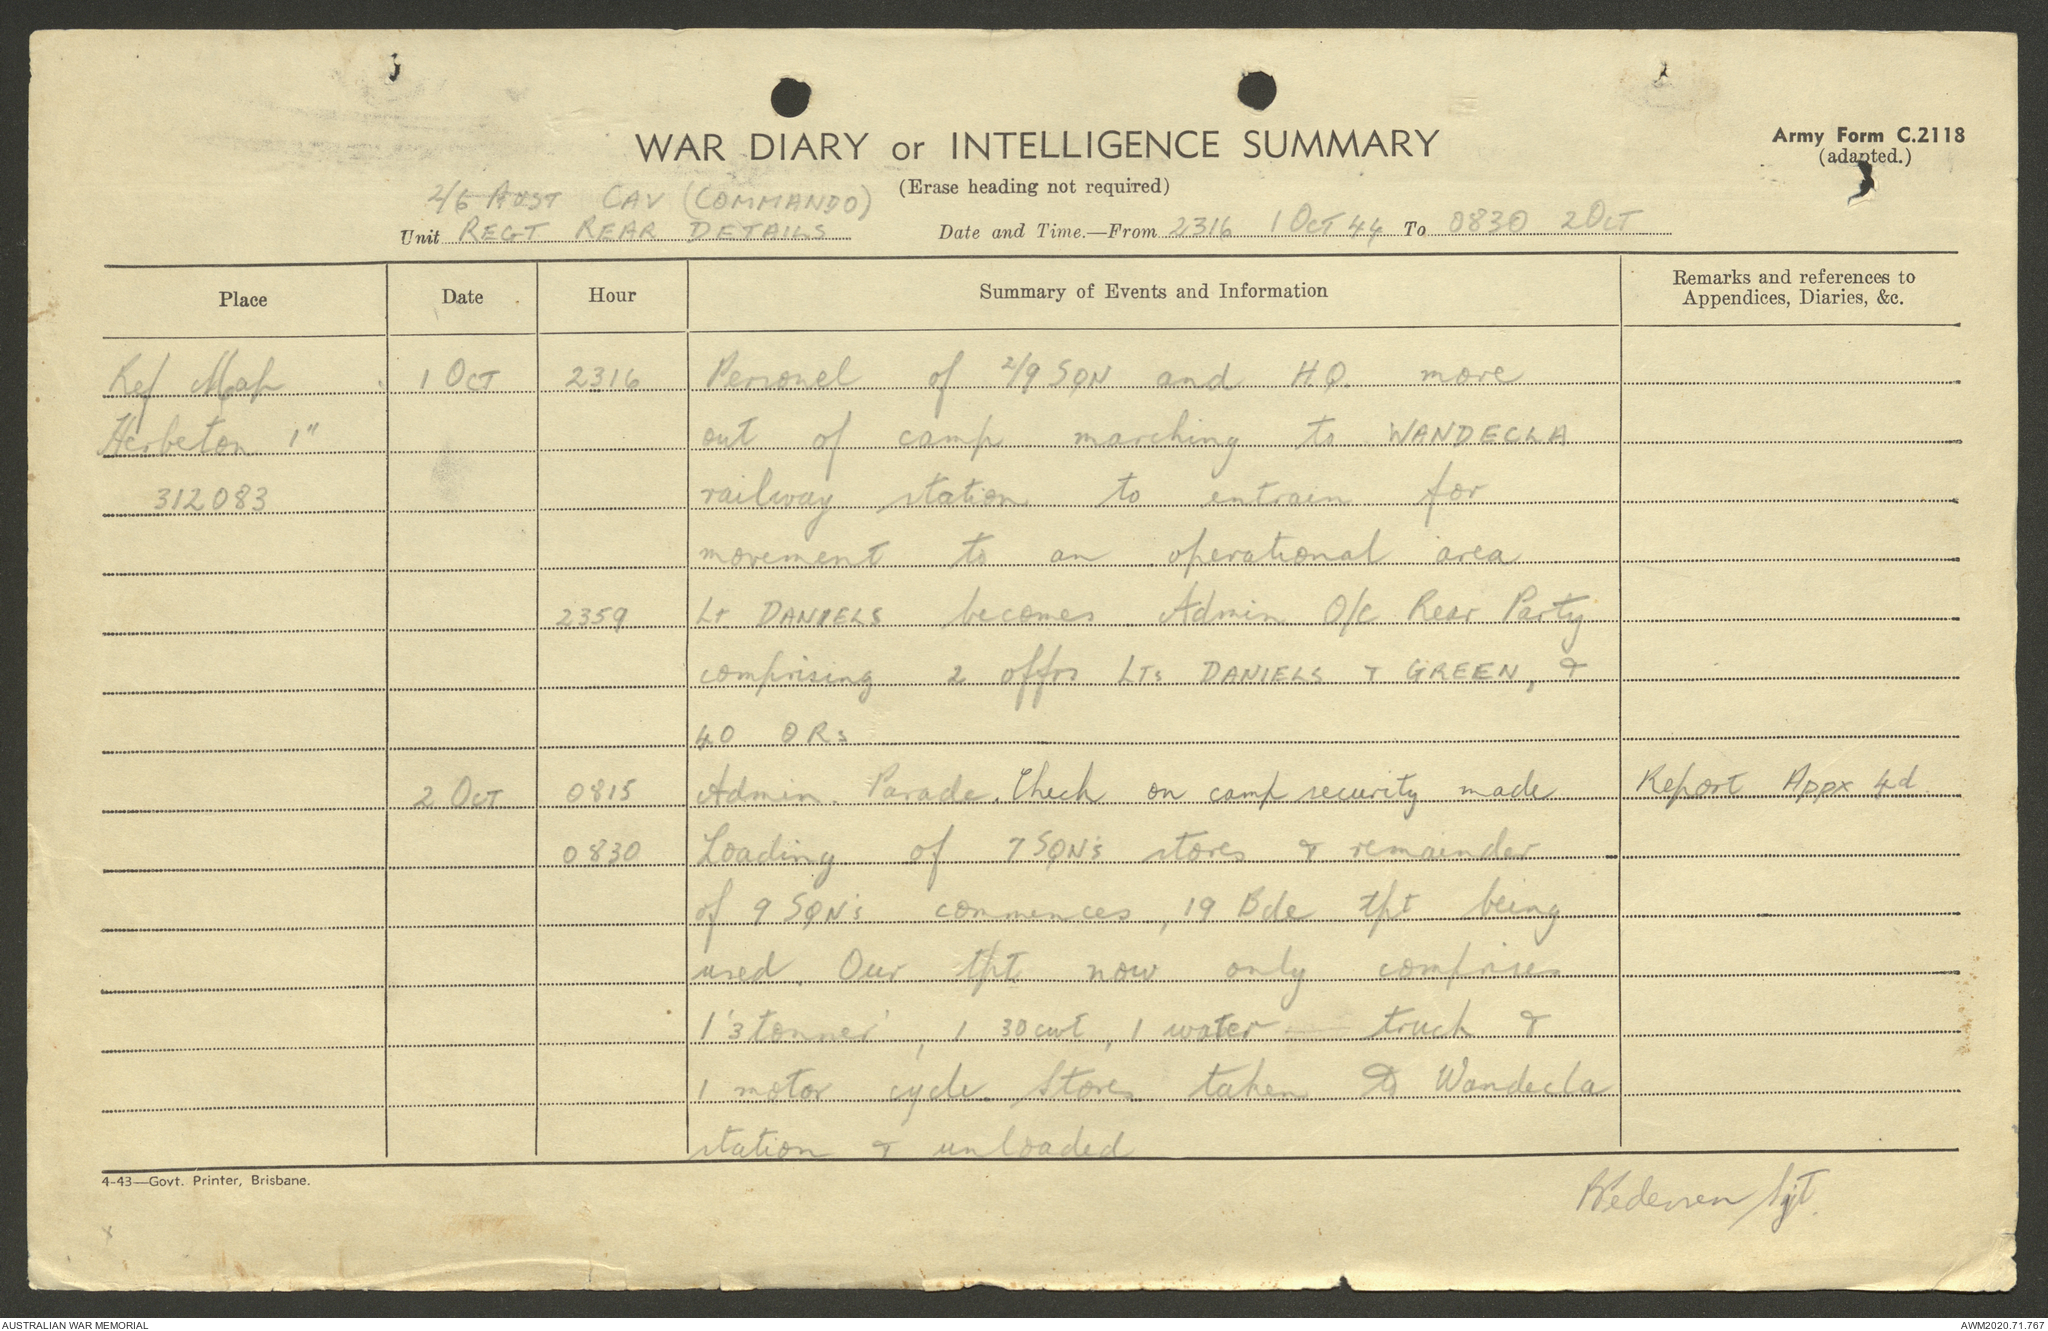 WAR DIARY or INTELLIGENCE SUMMARY
Army Form C.2118
(adapted.)
(Erase heading not required)
2/6 AUST CAV (COMMANDO)
Unit REGT REAR DETAILS
Date and Time.—From 2316 1 OCT 44 To 0830 2 OCT
Place Date Hour Summary of Events and Information Remarks and references to
Appendices, Diaries, &c.
Ref Map 1 OCT 2316 Personel of 2/9 SQN and H.Q. move
Herbeton 1" out of camp marching to WANDECLA
312083 railway station to entrain for
movement to an operational area
2359 Lt DANIELS becomes Admin O/C Rear Party
comprising 2 offrs LTs DANIELS & GREEN, &
40 ORs
2 OCT 0815 Admin. Parade. Check on camp security made Report Appx 4d
0830 Loading of 7 SQN's stores & remainder
of 9 SQN's commences, 19 Bde tpt being
used. Our tpt now only comprises
1 '3 tonner', 1 30cwt, 1 water truck &
1 motor cycle. Stores taken to Wandecla
station & unloaded
4-43—Govt. Printer, Brisbane.
Sgt.
AUSTRALIAN WAR MEMORIAL
AWM2020.71.767